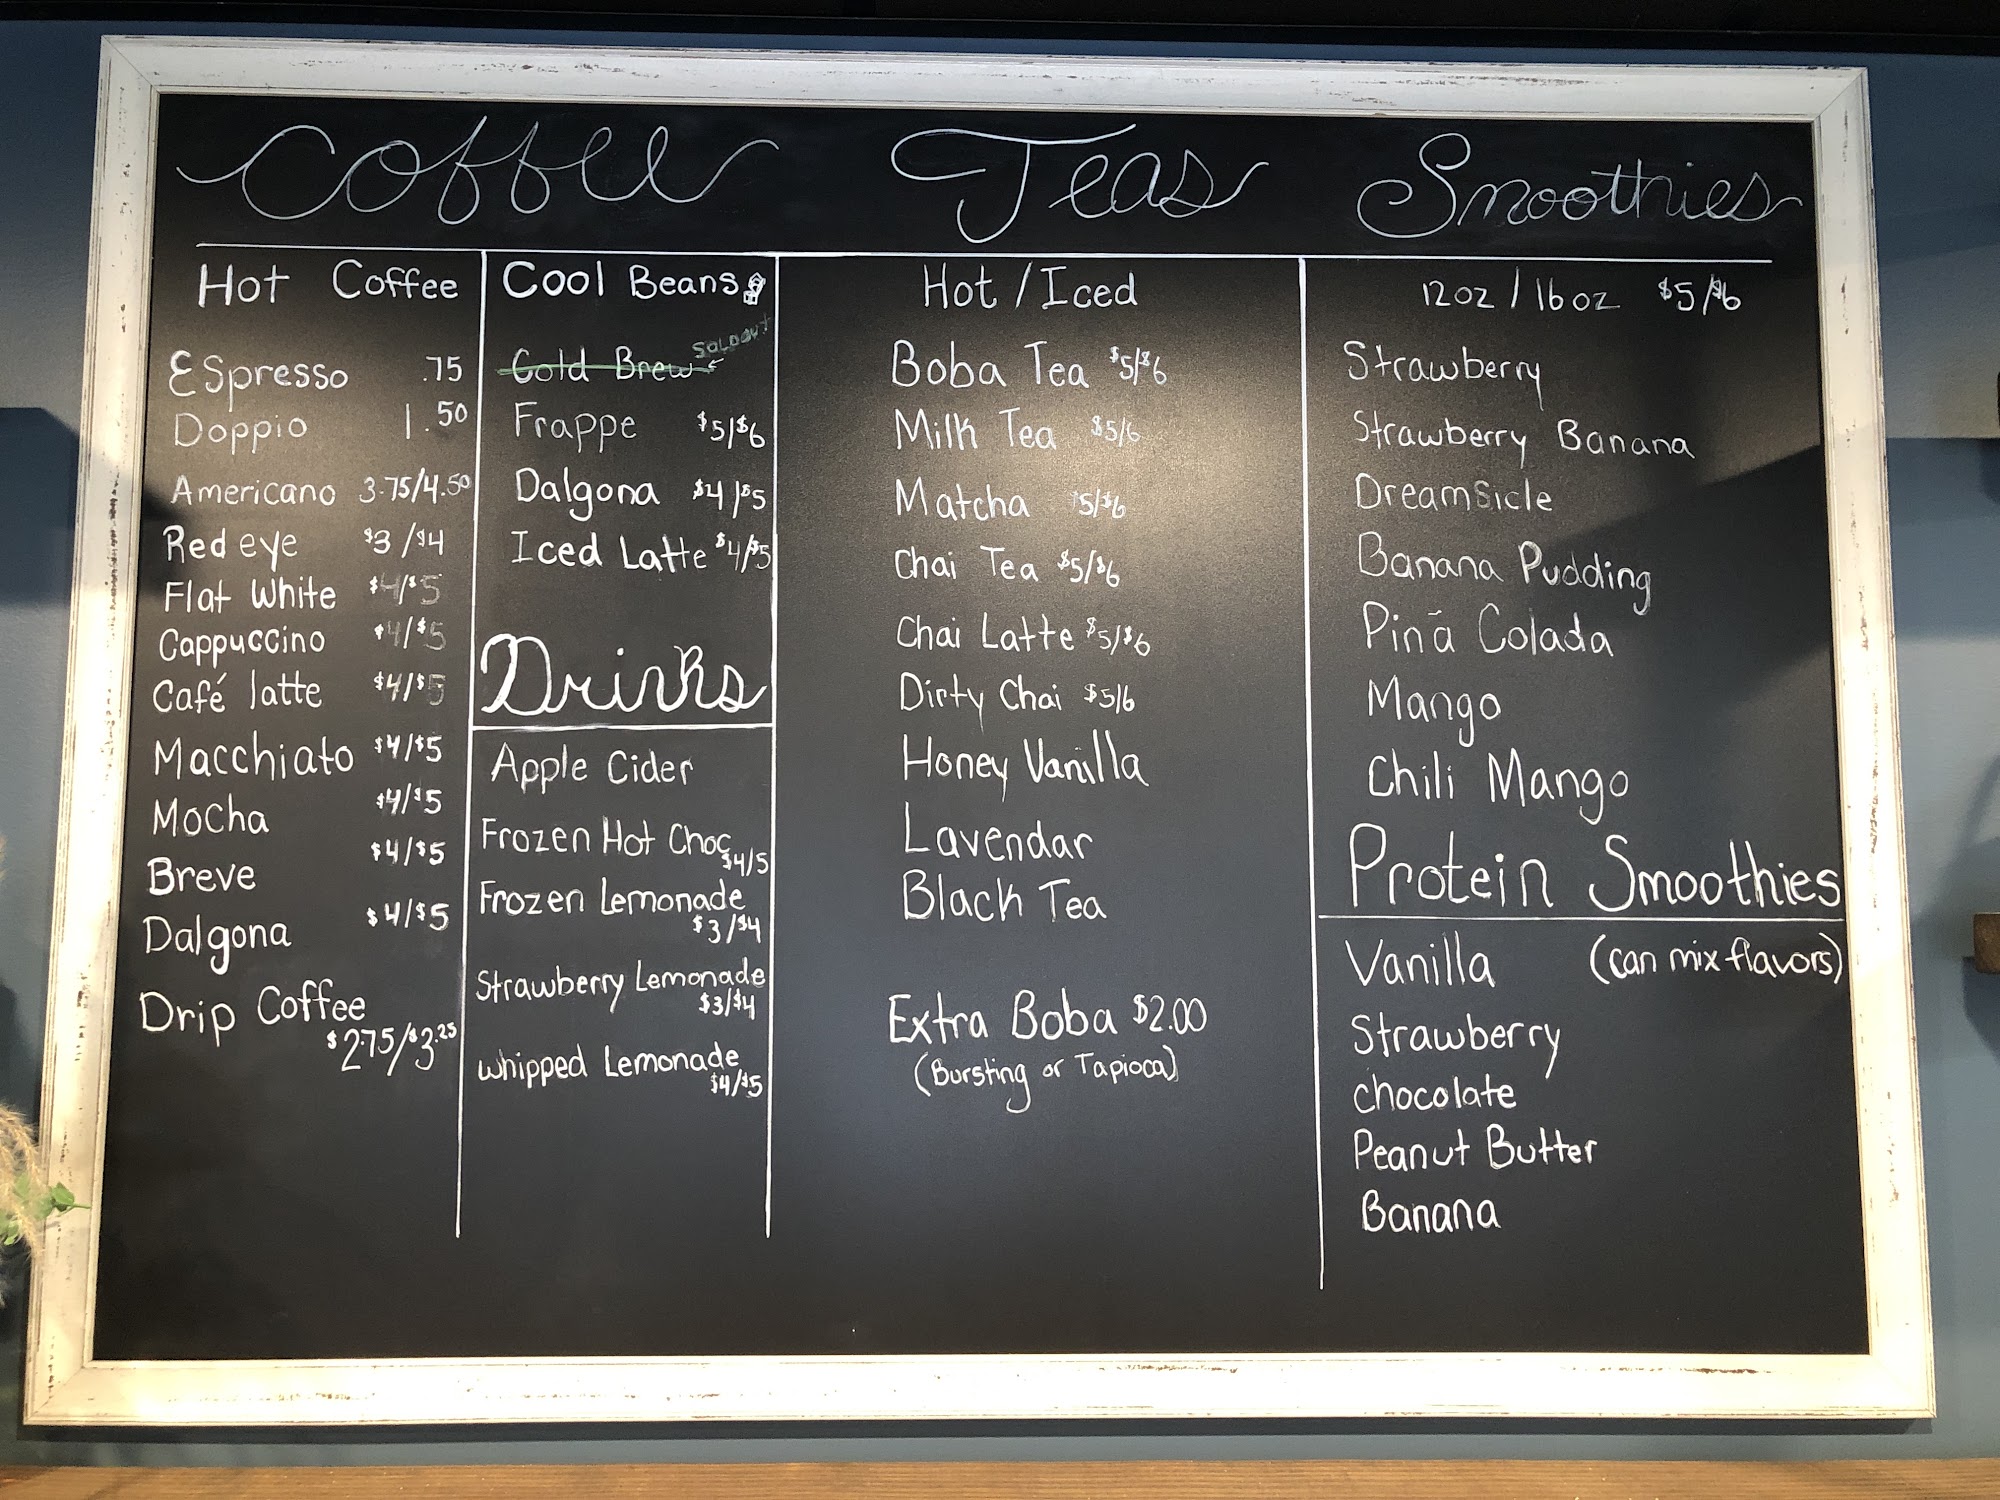 Coffee
Hot Coffee
Espresso .75
Doppio 1.50
Americano 3.75/4.50
Red eye $3/$4
Flat White $4/$5
Cappuccino $4/$5
Café latte $4/$5
Macchiato $4/$5
Mocha $4/$5
Breve $4/$5
Dalgona $4/$5
Drip Coffee
$2.75/$3.25
Cool Beans
Cold Brew soldout
Frappe $5/$6
Dalgona $4/$5
Iced Latte $4/$5
Drinks
Apple Cider
Frozen Hot Choc
$4/5
Frozen Lemonade
$3/$4
Strawberry Lemonade
$3/$4
Whipped Lemonade
$4/$5
Teas
Hot / Iced
Boba Tea $5/$6
Milk Tea $5/6
Matcha $5/$6
Chai Tea $5/$6
Chai Latte $5/$6
Dirty Chai $5/6
Honey Vanilla
Lavendar
Black Tea
Extra Boba $2.00
(Bursting or Tapioca)
Smoothies
12oz / 16oz $5/$6
Strawberry
Strawberry Banana
Dreamsicle
Banana Pudding
Pinã Colada
Mango
Chili Mango
Protein Smoothies
Vanilla (can mix flavors)
Strawberry
chocolate
Peanut Butter
Banana